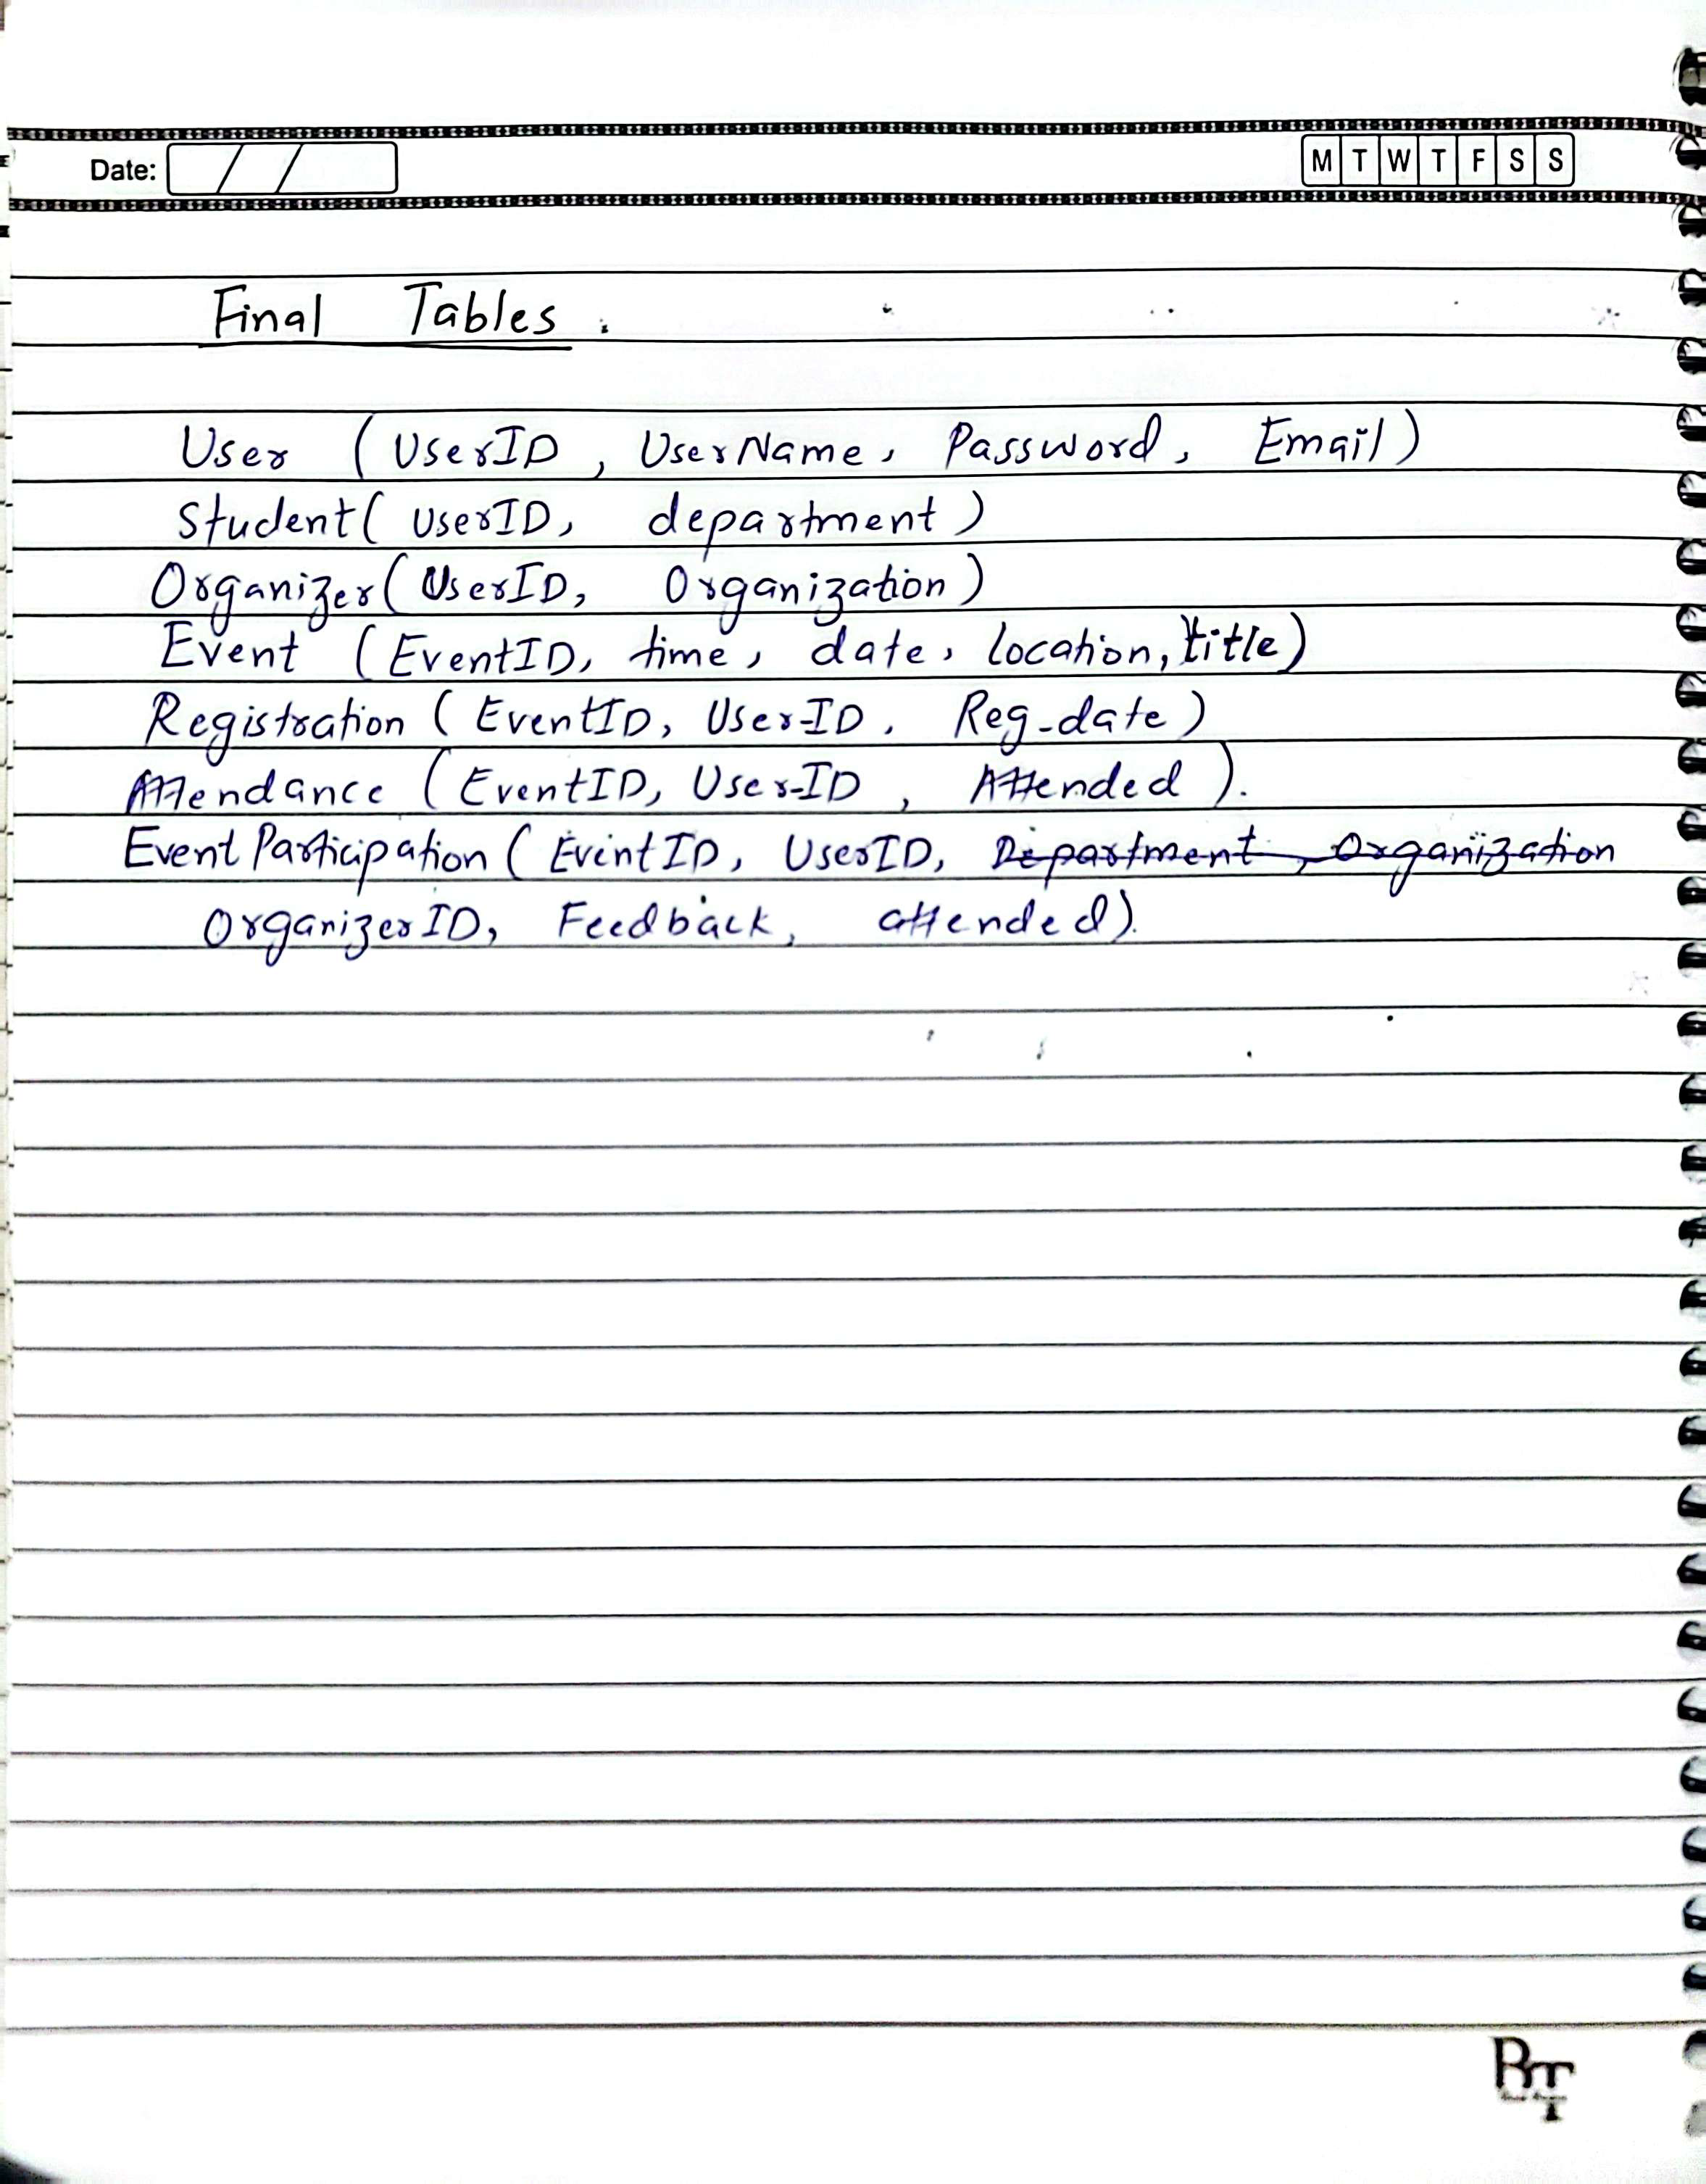 Date: / /
M T W T F S S
Final Tables.
User (UserID, UserName, Password, Email)
Student(UserID, department)
Organizer(UserID, Organization)
Event (EventID, time, date, location, title)
Registration (EventID, User-ID, Reg-date)
Attendance (EventID, User-ID, Attended).
Event Participation (EvintID, UserID, Department, Organization
OrganizerID, Feedback, attended).
BT